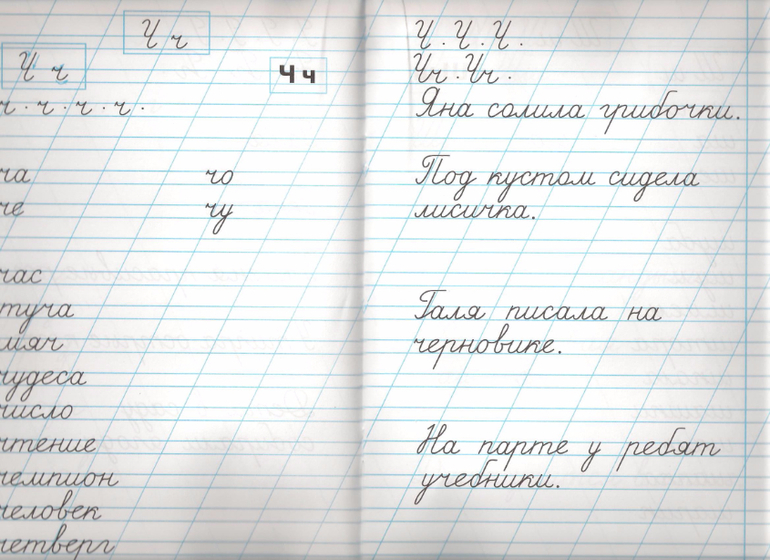 Ч ч
Ч ч
Ч ч
ч . ч . ч . ч .
ча чо
че чу
час
туча
мяч
чудеса
число
чтение
чемпион
человек
четверг
Ч . Ч . Ч .
Чч . Чч .
Яна солила грибочки.
Под кустом сидела
лисичка.
Галя писала на
черновике.
На парте у ребят
учебники.